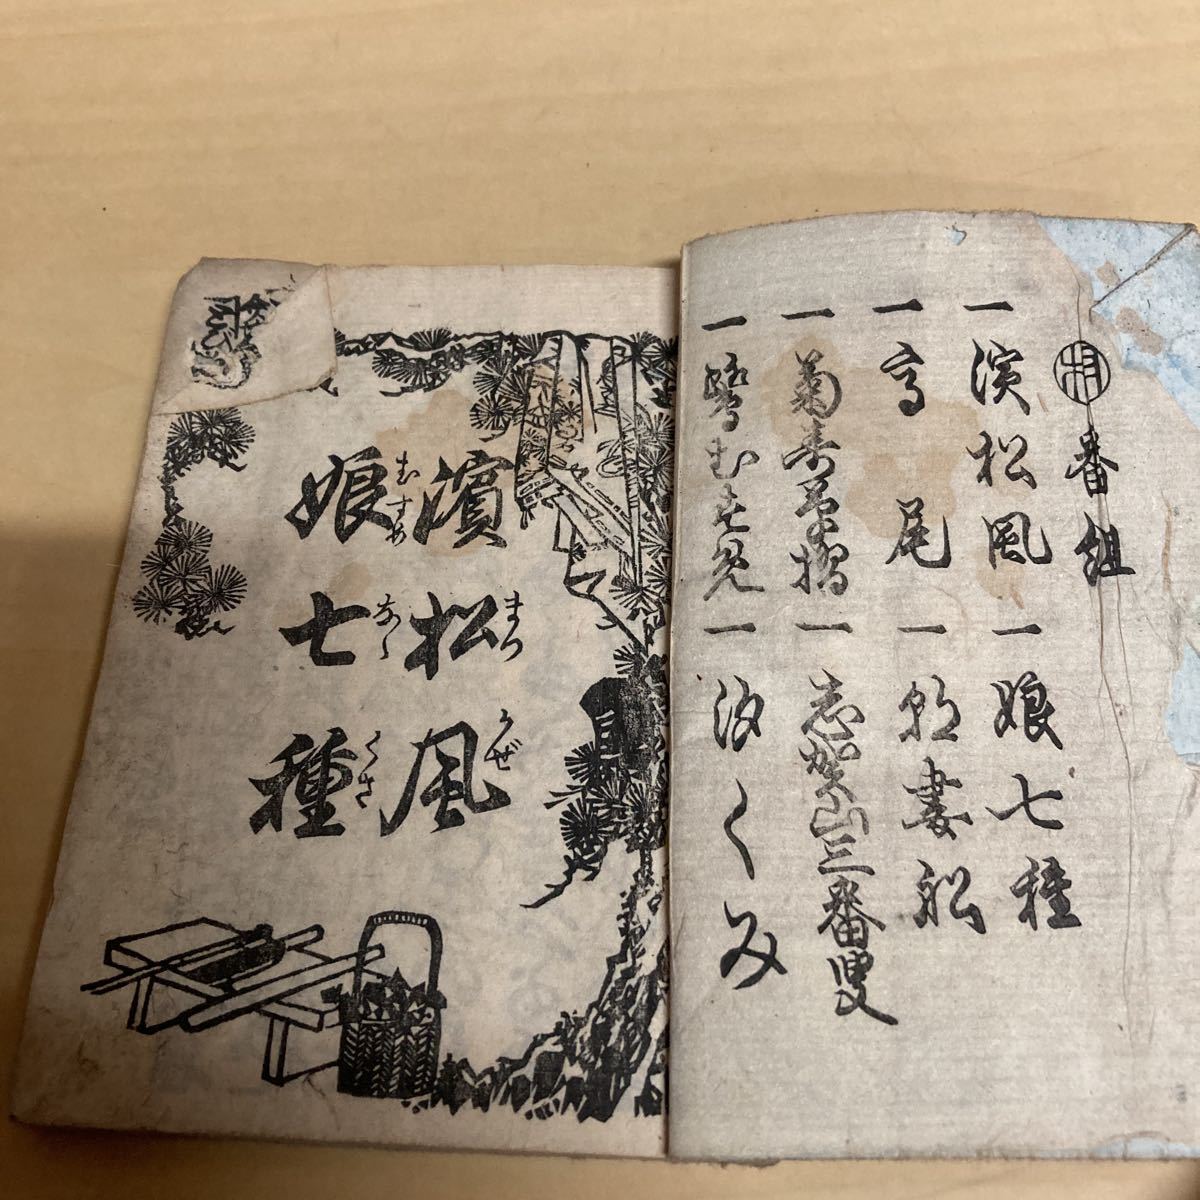 番組
一 濱松風 一 娘七種
一 高尾 一 朝妻船
一 菊寿草摺 一 志賀山三番叟
一 鷺むすめ 一 汐くみ
濱松風
まつかぜ
娘七種
むすめなゝくさ